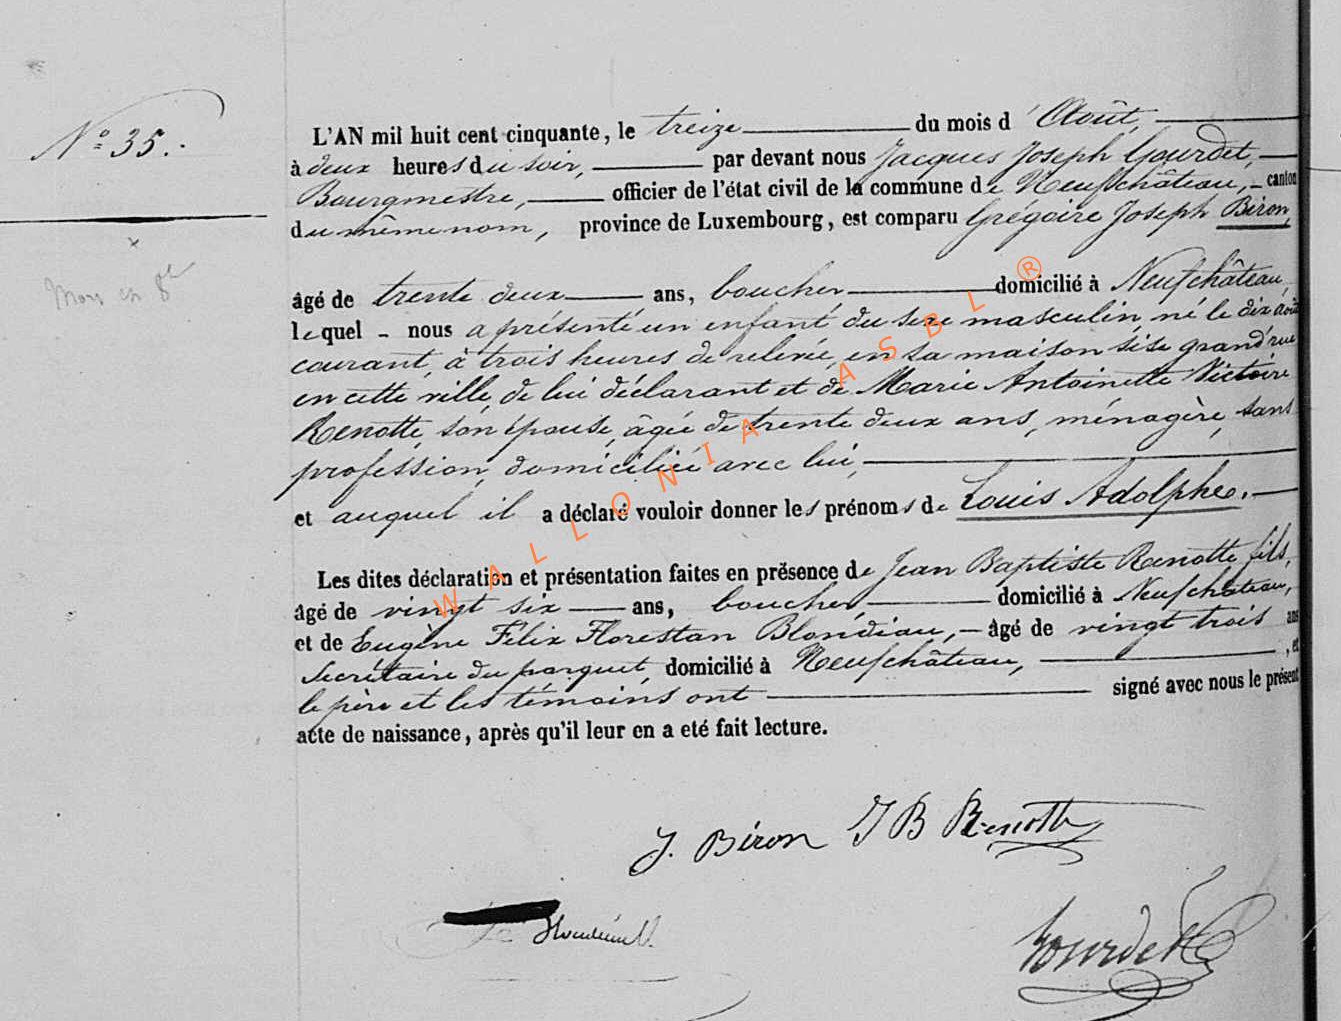 N° 35.
L'AN mil huit cent cinquante, le treize du mois d'Août,
à deux heures du soir, par devant nous Jacques Joseph Gourdet,
Bourgmestre, officier de l'état civil de la commune de Neufchâteau, canton
du même nom, province de Luxembourg, est comparu Grégoire Joseph Biron,
âgé de trente deux ans, boucher domicilié à Neufchâteau
lequel nous a présenté un enfant du sexe masculin né le dix août
courant, à trois heures de relevée, en sa maison sise grand'rue
en cette ville, de lui déclarant et de Marie Antoinette Victoire
Renotte, son épouse, âgée de trente deux ans, ménagère, sans
profession, domiciliée avec lui,
et auquel il a déclaré vouloir donner les prénoms de Louis Adolphe.
Les dites déclaration et présentation faites en présence de Jean Baptiste Renotte fils,
âgé de vingt six ans, boucher domicilié à Neufchâteau,
et de Eugène Félix Florestan Blondiau, âgé de vingt trois ans
secrétaire du parquet, domicilié à Neufchâteau, , et
le père et les témoins ont signé avec nous le présent
acte de naissance, après qu'il leur en a eté fait lecture.
J. Biron J B Renotte
Gourdet
WALLONIA ASBL ®